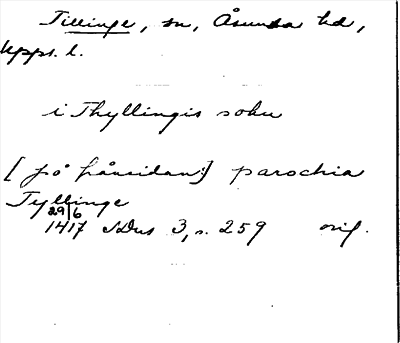 Tillinge, sn, Åsunda hd,
Upps. l.
i Thyllingis sokn
[på frånsidan:] parochia
Tyllinge
29/6
1417 SDns 3, s. 259 orig.